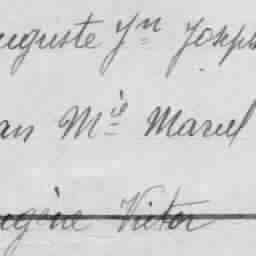 uguste Jn Joseph
an Mie Marcel
ugène Victor